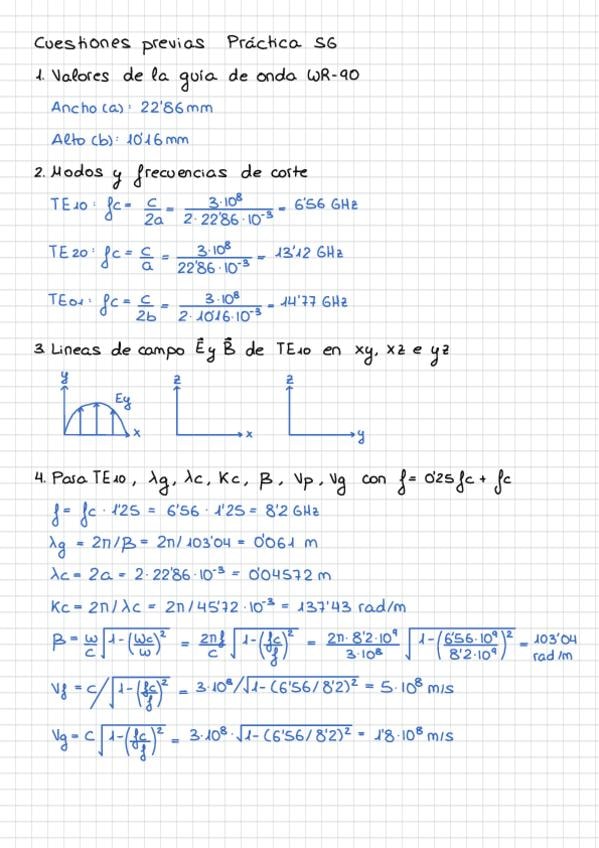 Cuestiones previas Práctica S6
1. Valores de la guía de onda WR-90
Ancho (a): 22'86 mm
Alto (b): 10'16 mm
2. Modos y frecuencias de corte
TE10: fc = c/2a = 3·10⁸/(2·22'86·10⁻³) = 6'56 GHz
TE20: fc = c/a = 3·10⁸/(22'86·10⁻³) = 13'12 GHz
TE01: fc = c/2b = 3·10⁸/(2·10'16·10⁻³) = 14'77 GHz
3. Lineas de campo E⃗ y B⃗ de TE10 en xy, xz e yz
y Ey x
z x
z y
4. Para TE10, λg, λc, Kc, β, Vp, Vg con f = 0'25fc + fc
f = fc · 1'25 = 6'56 · 1'25 = 8'2 GHz
λg = 2π/β = 2π/103'04 = 0'061 m
λc = 2a = 2·22'86·10⁻³ = 0'04572 m
Kc = 2π/λc = 2π/45'72·10⁻³ = 137'43 rad/m
β = ω/c √(1-(ωc/ω)²) = 2πf/c √(1-(fc/f)²) = 2π·8'2·10⁹/3·10⁸ √(1-(6'56·10⁹/8'2·10⁹)²) = 103'04 rad/m
Vf = c/√(1-(fc/f)²) = 3·10⁸/√(1-(6'56/8'2)²) = 5·10⁸ m/s
Vg = c√(1-(fc/f)²) = 3·10⁸·√(1-(6'56/8'2)²) = 1'8·10⁸ m/s